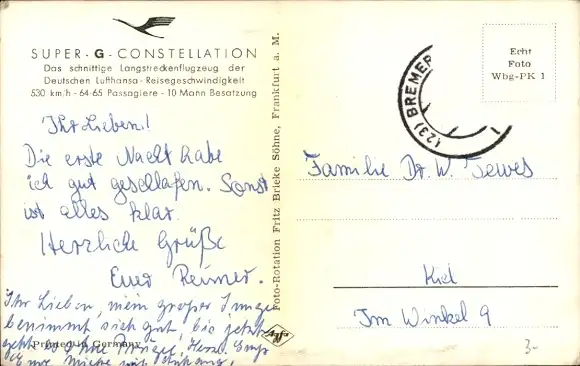 SUPER-G-CONSTELLATION
Das schnittige Langstreckenflugzeug der
Deutschen Lufthansa - Reisegeschwindigkeit
530 km/h - 64-65 Passagiere - 10 Mann Besatzung
Ihr Lieben!
Die erste Nacht habe
ich gut geschlafen. Sonst
ist alles klar.
Herzliche Grüße
Euer Reimer.
Ihr Lieben, mein großer Junge
benimmt sich gut, bis jetzt
geht es ohne Prügel. Herzl.
Eure
Printed in Germany
Agfa
Foto-Rotation Fritz Brieke Söhne, Frankfurt a. M.
(23) BREMER
Echt
Foto
Wbg-PK 1
Familie Dr. W. Tewes
Kiel
Im Winkel 9
3-